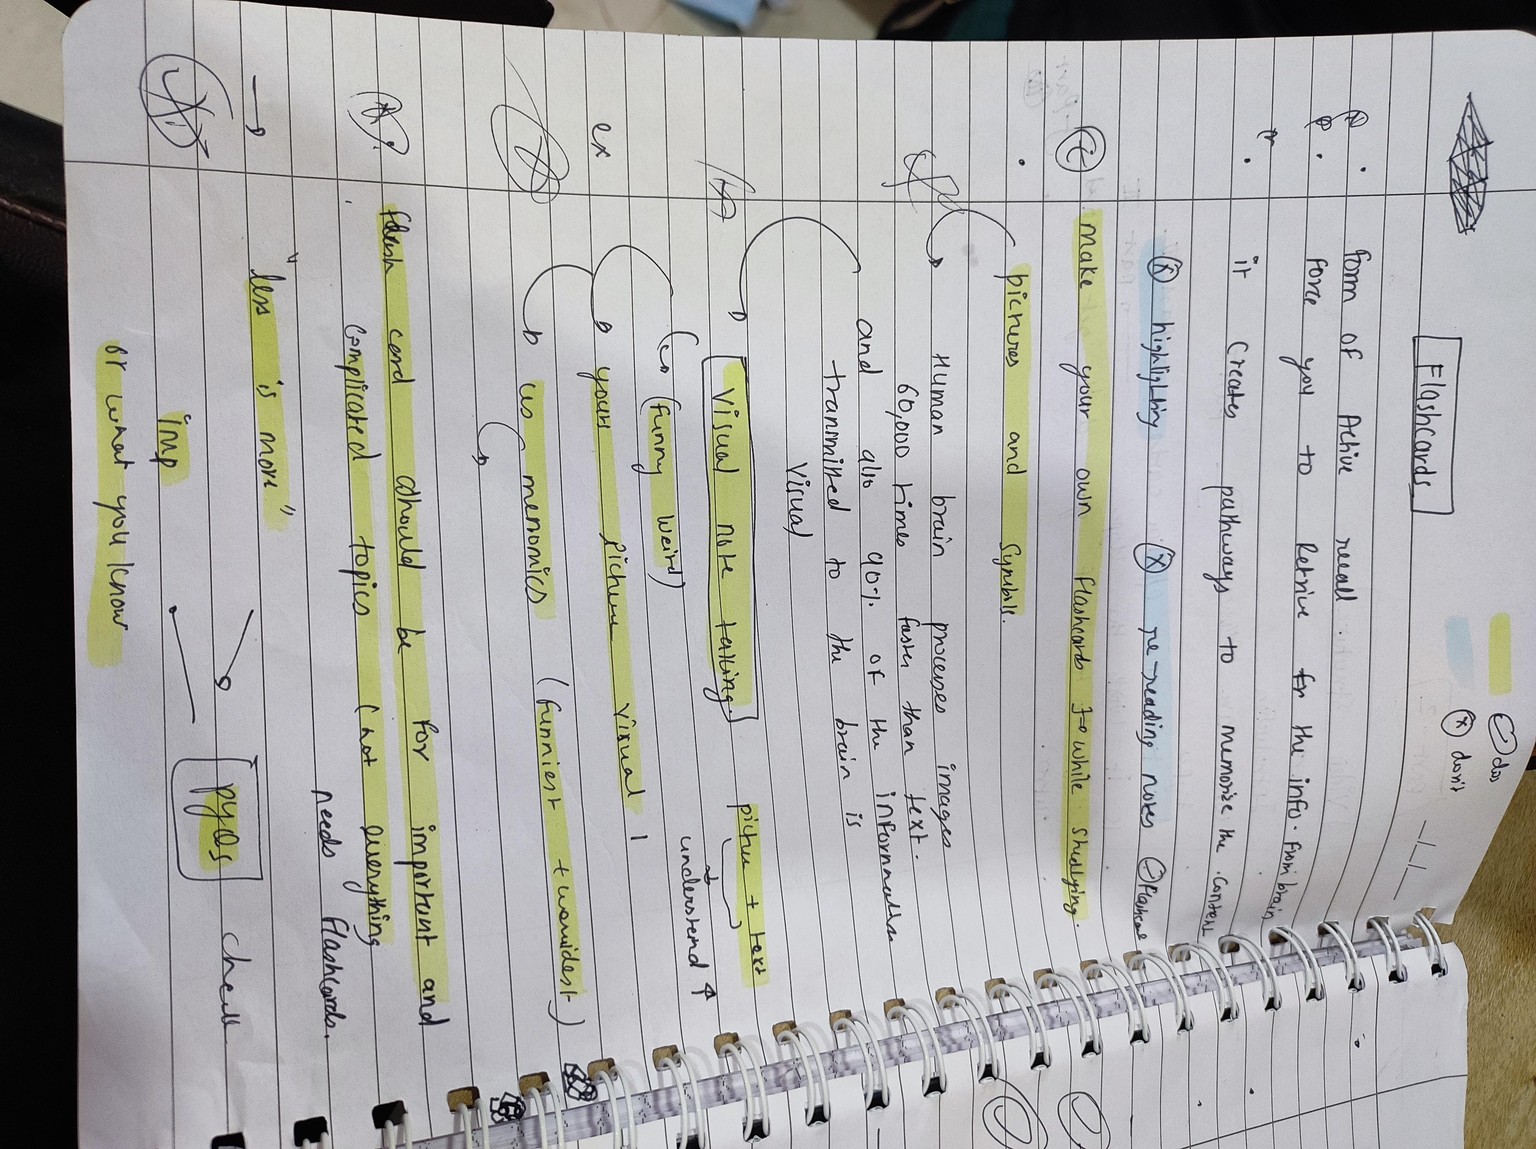 dos
(x) don't
Flashcards
Form of Active recall.
Force you to Retrive the info. From brain
it creates pathways to memorise the content
(x) highlighting (x) re-reading notes
(i) make your own flashcards while studying.
pictures and Symbols.
Human brain processes images
60,000 times faster than text.
and also 90% of the
tranmitted to the brain is
Visual
Visual note taking picture + text
understand ↑
(funny weird)
ex yours picture visual
us memonics (funniest + weirdest)
Flash card should be for important and
complicated topics (not everything
needs flashcards.
→ "less is more"
pyqs check
imp
or what you know